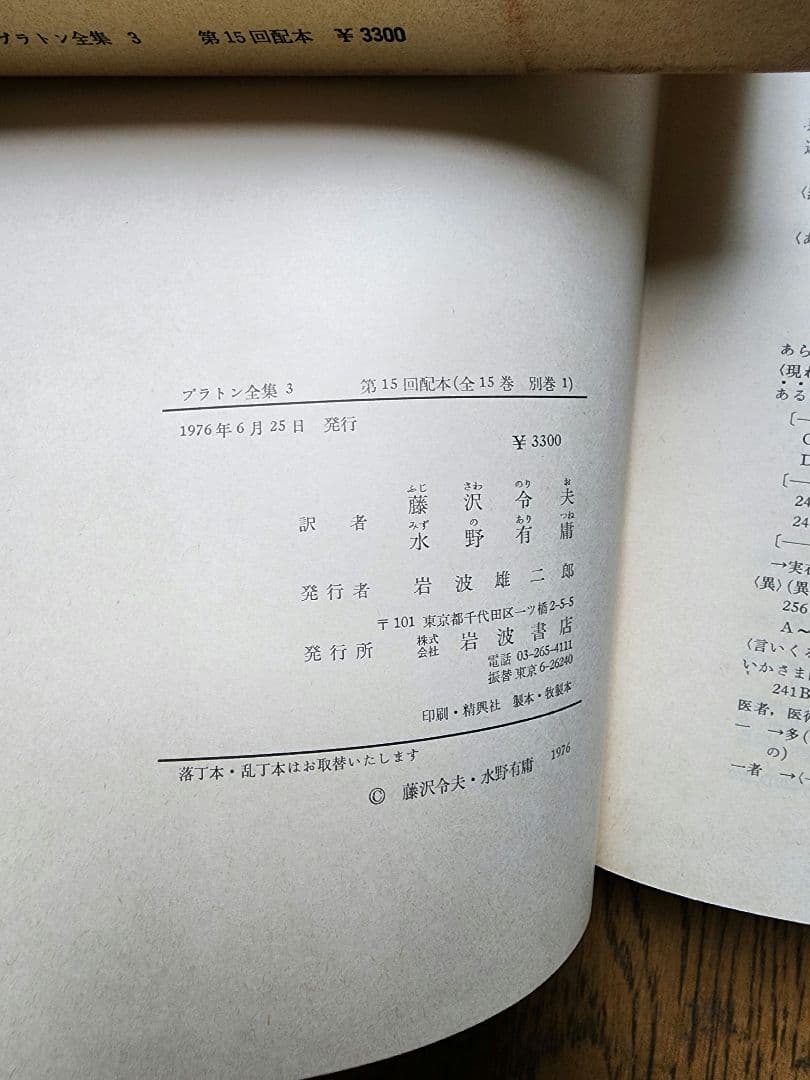 プラトン全集 3 第15回配本 ¥3300
プラトン全集 3 第15回配本(全15巻 別巻1)
1976年6月25日 発行
¥3300
ふじ さわ のり お
訳者 藤沢令夫
みず の あり つね
水野有庸
発行者 岩波雄二郎
〒101 東京都千代田区一ツ橋2-5-5
発行所 株式会社 岩波書店
電話 03-265-4111
振替 東京 6-26240
印刷・精興社 製本・牧製本
落丁本・乱丁本はお取替いたします
© 藤沢令夫・水野有庸 1976
あら
〈現れ
ある
[―
[―
24
24
[―
→実在
〈異〉(異
256
A～
〈言いくる
いかさま
241B
医者，医術
一 →多(
の)
一者 →〈一